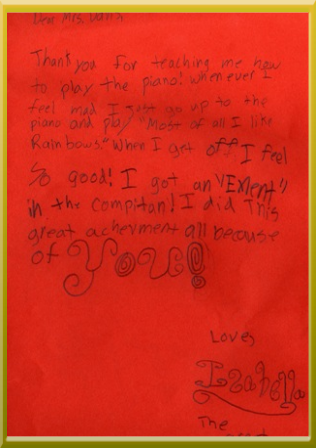 Dear Mrs.
Thank you for teaching me how
to play the piano! When ever I
feel mad I just go up to the
piano and play "Most of all I like
Rainbows." When I get off I feel
so good! I got an "EXlent"
in the compitan! I did this
great achevment all because
of You!
Love,
Izabella
The